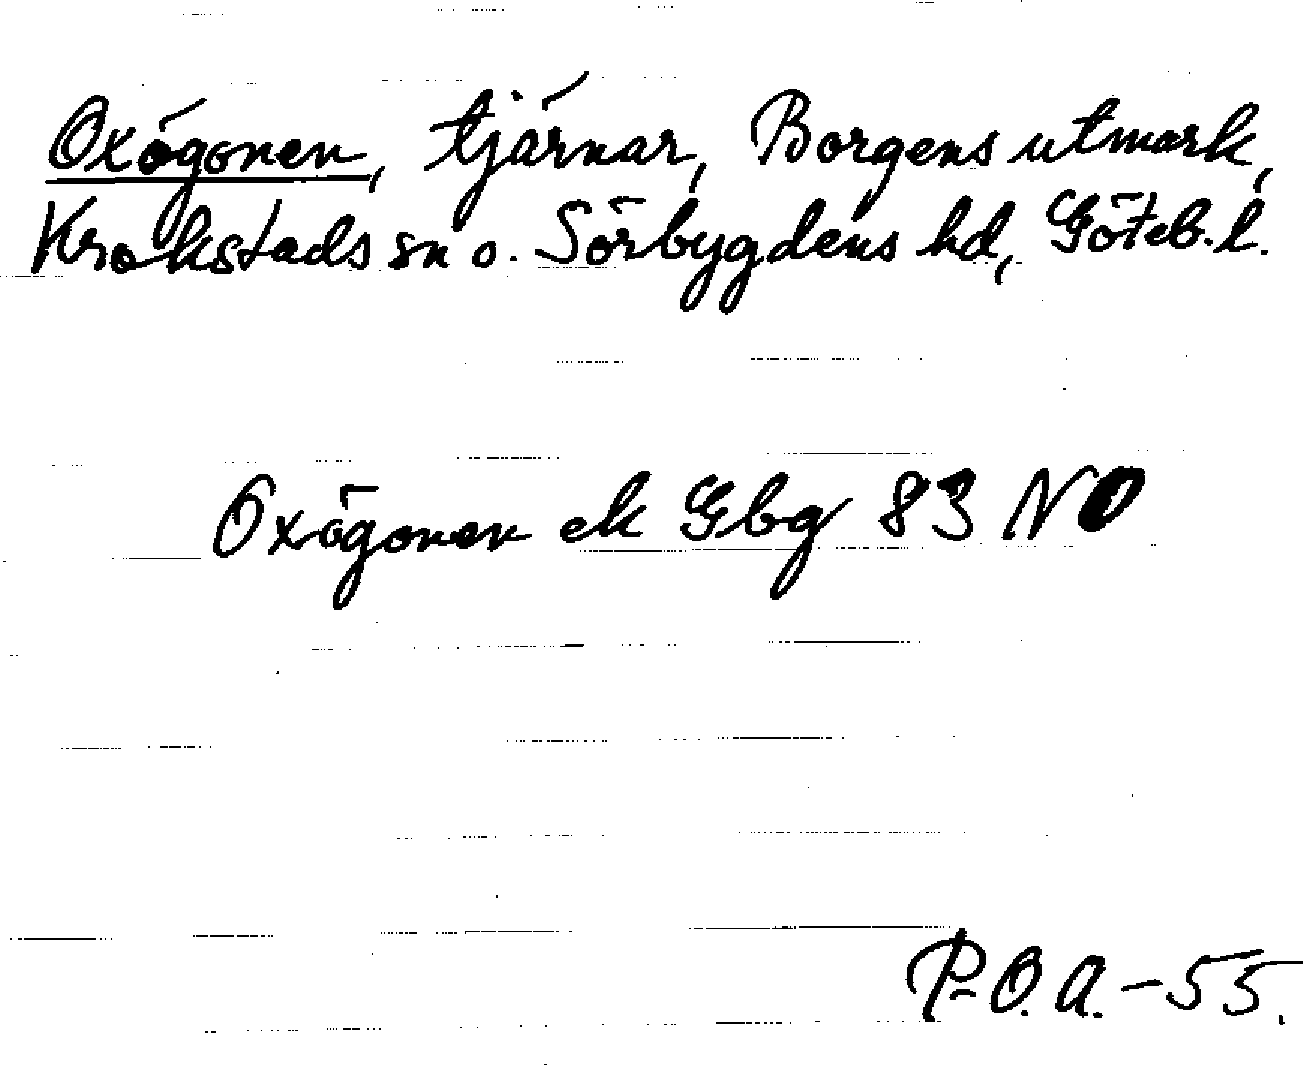 Oxögonen, tjärnar, Borgens utmark,
Krokstads sn o. Sörbygdens hd, Göteb. l.
Oxögonen ek Gbg 83 NO
P-O. A. - 55.